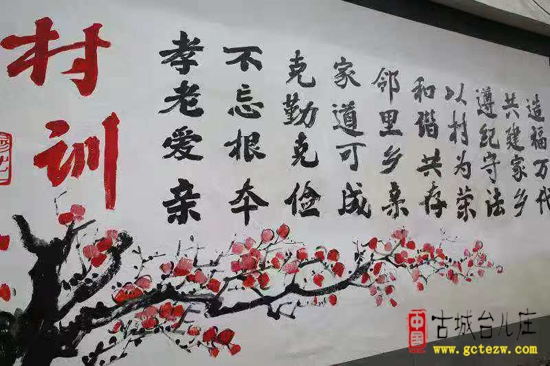 村训
孝老爱亲
不忘根本
克勤克俭
家道可成
邻里乡亲
和谐共存
以村为荣
遵纪守法
共建家乡
造福万代
中国
古城台儿庄
www.gctezw.com